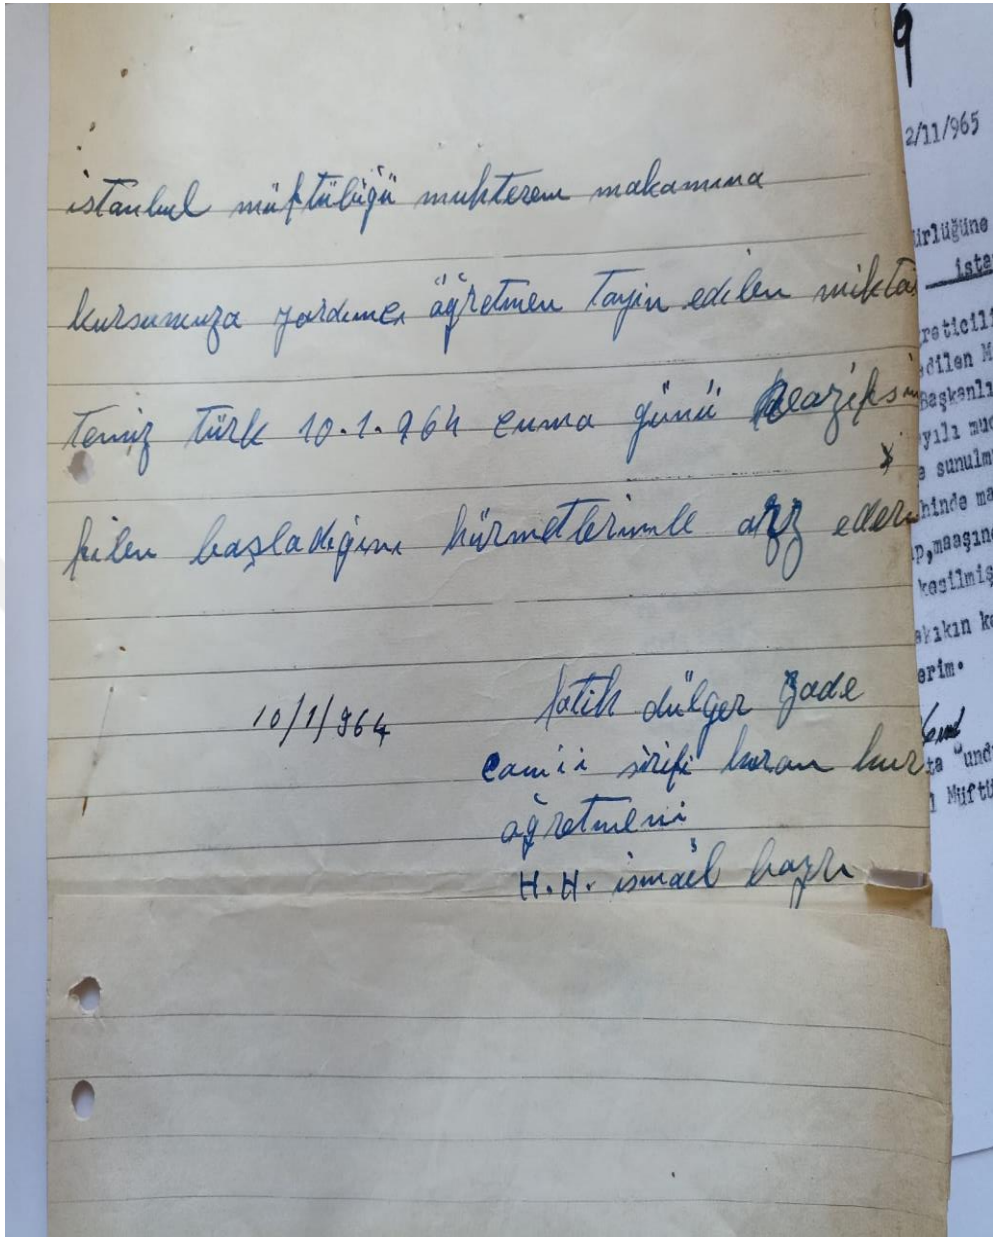 istanbul müftülüğü muhterem makamına
kursumuza yardımcı öğretmen Tayin edilen mikta
Temiz Türk 10.1.964 cuma günü
filen başladığını hürmetlerimle arz eder
10/1/964
fatih dülger zade
camii şirifi kuran kur
öğretmeni
H.H. ismail
2/11/965
ürlüğüne
ista
reticili
edilen M
Başkanlı
yılı muc
e sunulm
hinde ma
p,maaşınd
kesilmiş
akıkın ka
erim.